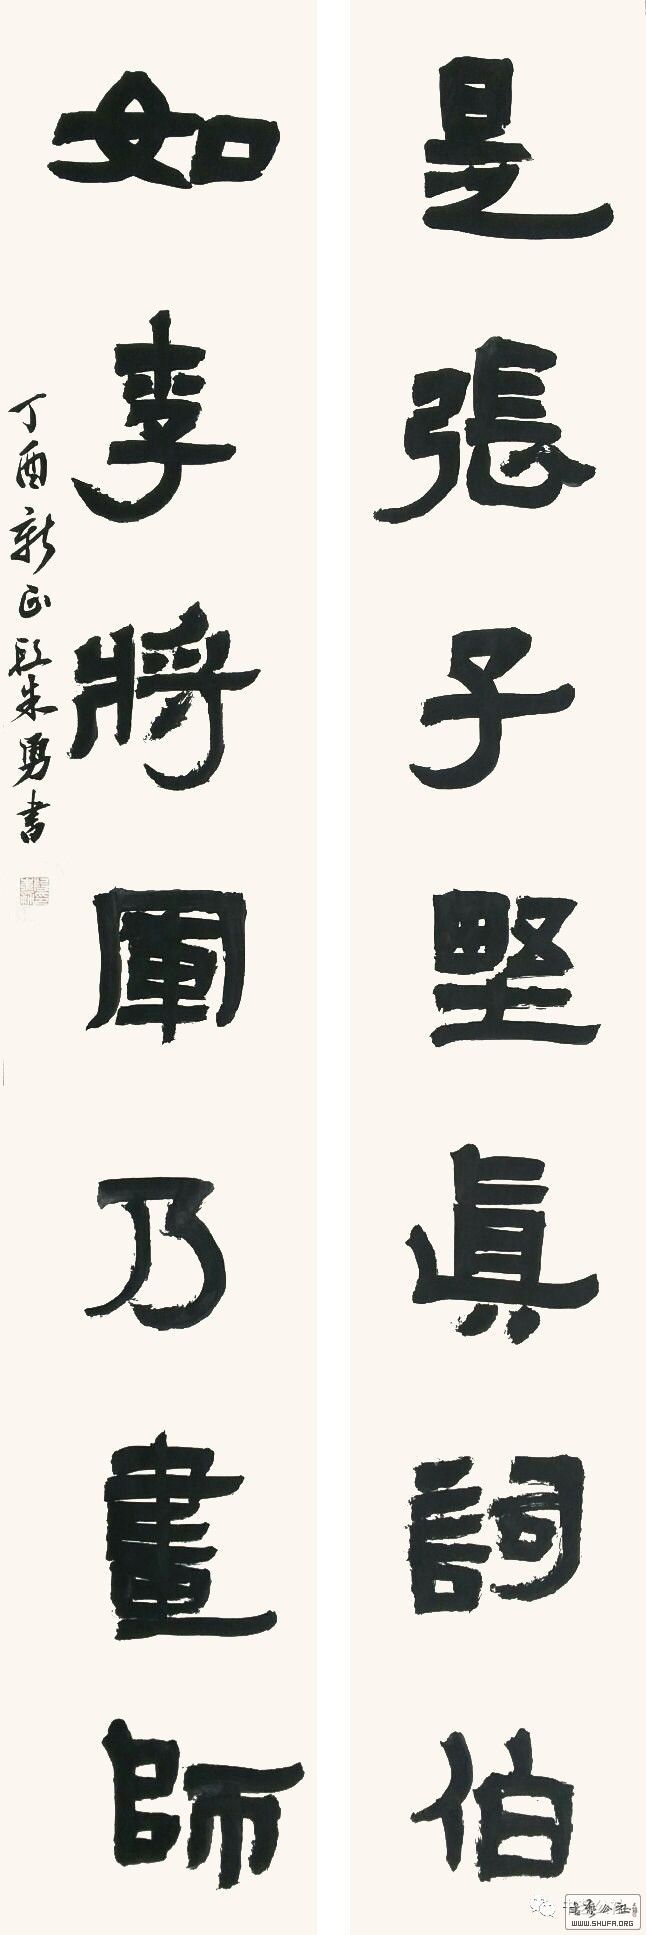 是張子野真詞伯
如李將軍乃畫師
丁酉新正
朱勇書
WWW.SHUFA.ORG